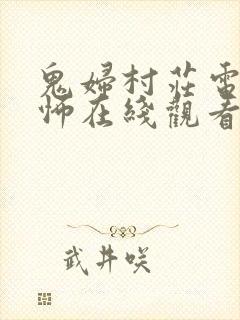 鬼婦村莊電
怖在綫觀看
武井咲